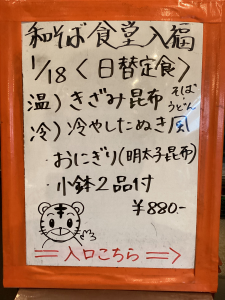 和そば食堂入福
1/18〈日替定食〉
温)きざみ昆布 そば うどん
冷)冷やしたぬき風
・おにぎり(明太子昆布)
・小鉢2品付
¥880.-
入口こちら